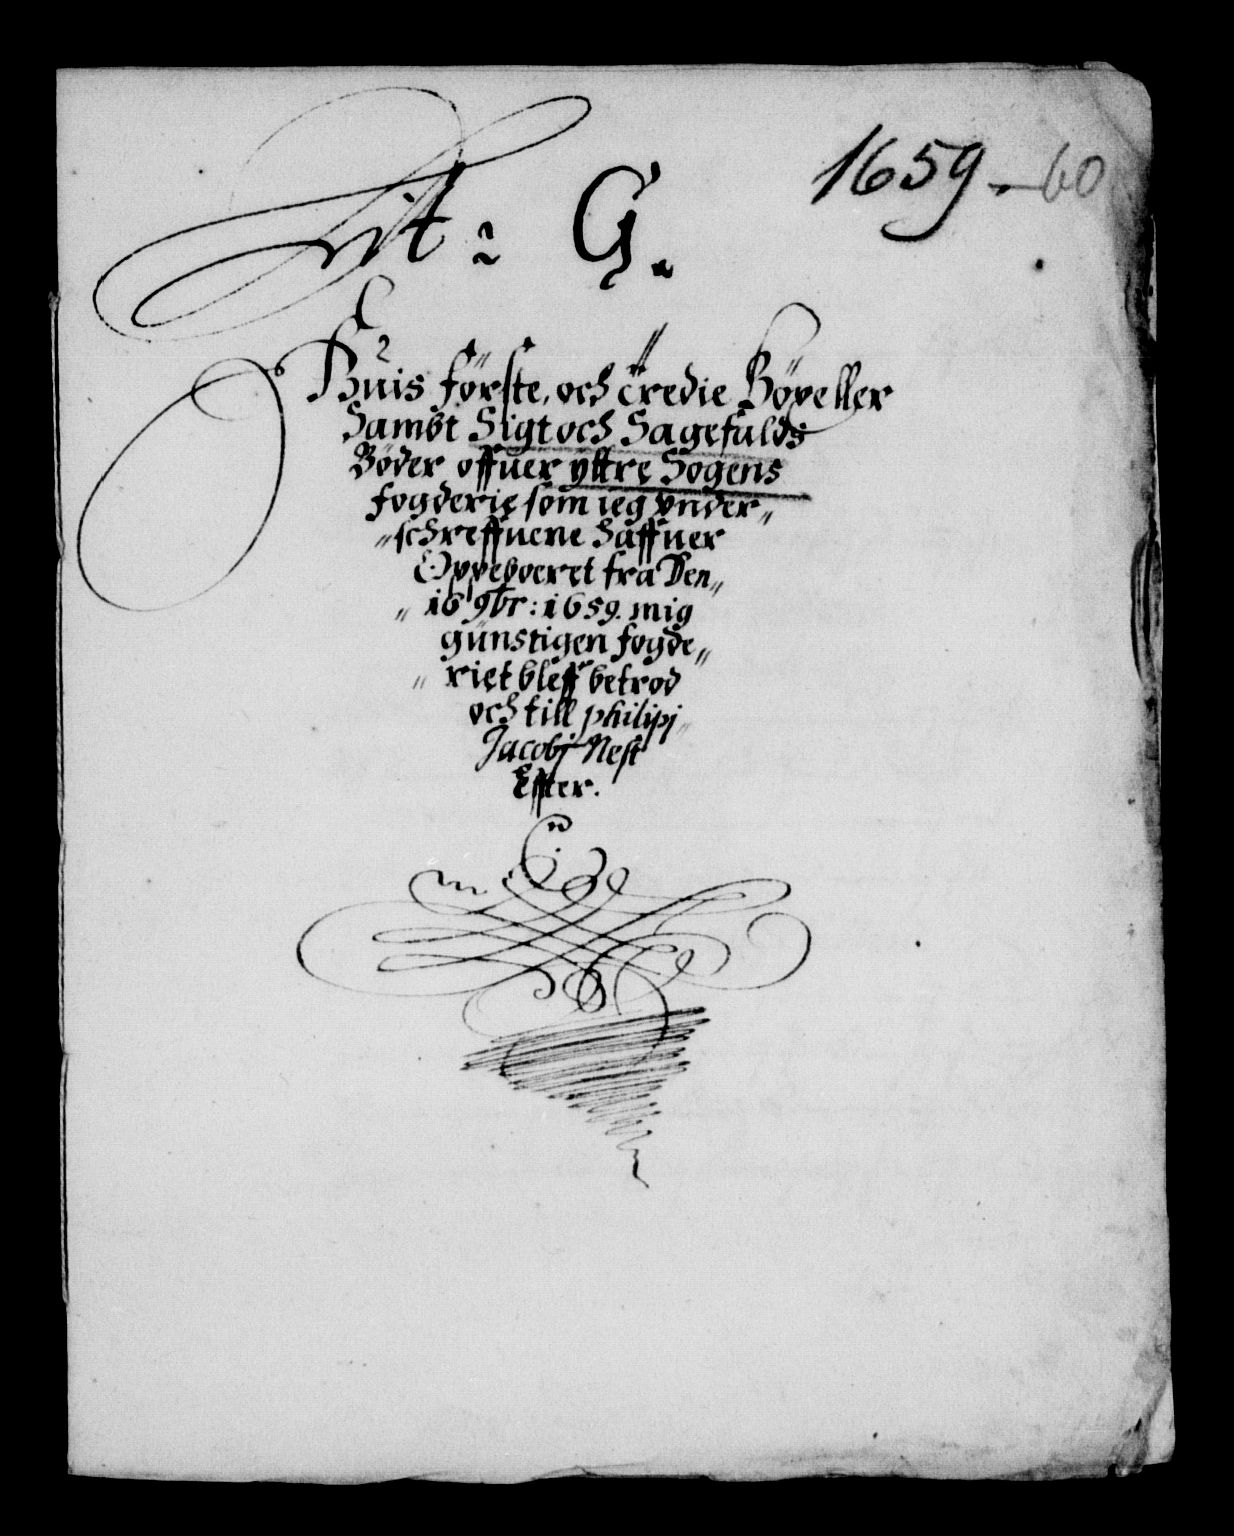 Lit: G.
1659 - 60
Huis förste, och tredie Böxeller
Sambt Sigt och Sagefalds
Böder offuer yttre Sogens
fogderie som ieg vnder„
„schreffuene haffuer
Oppeboeret fra Den„
„16 9br: 1659. mig
günstigen fogde„
„riet bleff betrod
och till philipj
Jacobj Nest
Effter.